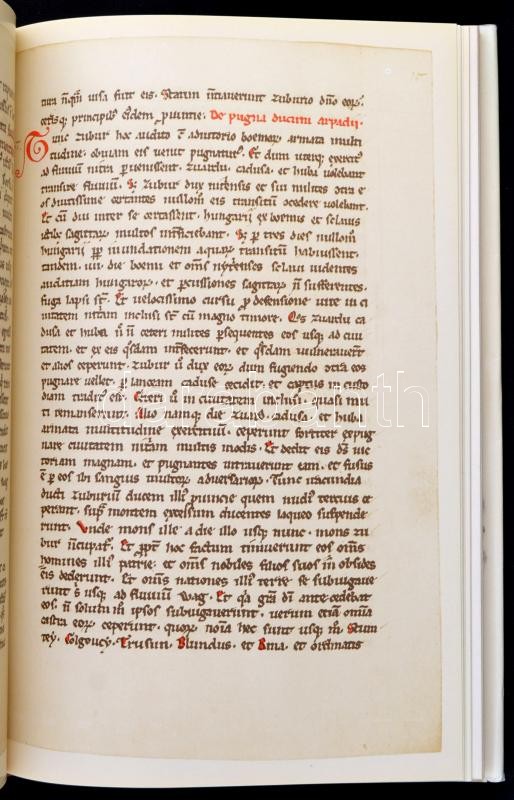 tura nūqm̄ uisa fuit eis. Statim nūtiauerunt zuburio dno eoꝝ.
cet̄isq; principib; eiusdem puintie. De pugna ducum arpadii.
Tunc zubur hoc audito cum adiutorio boemoꝝ armata multi
tudine. obuiam eis uenit pugnaturus. Et dum uterq; exercit9
ad fluuiū nitra peruenissent. zuardu. cadusa. et huba uolebant
transire fluuiū. Sed zubur dux nitriensis et sui milites
certantes nullom̄ eis transitū concedere uolebant.
Et cū diu inter se certassent. hungarii ex boemis et sclauis
ictibus sagittaꝝ multos int̄ficiebant. Sed per tres dies nullom̄
hungarii inundationem aquaꝝ transitū habuissent.
tandem iiii. die boemi et om̄s nytrienses sclaui uidentes
audatiam hungaroꝝ. et pcussiones sagittaꝝ nō sufferentes.
fuga lapsi st̄. Et uelocissimo cursu p defensione uite in ci
uitatem nitram inclusi st̄ cū magno timore. Quos zuardu ca
dusa et huba et ceteri milites persequentes eos usq; ad ciui
tatem. et ex eis quosdam int̄fecerunt. et quosdam uulnerauer̄t
et alios ceperunt. zubur dux eoꝝ dum fugiendo contra eos
pugnare uellet. p lanceam caduse cecidit et captus in custo
diam traditus est. Ceteri in ciuitatem inclusi. quasi mu
ti remanserunt. Alio namq; die zuard. cadusa. et huba.
armata multitudine exercituū. ceperunt fortiter expug
nare ciuitatem nitriam multis modis. Et dedit eis ds uic
toriam magnam. et pugnantes intrauerunt eam. et fusus
est p eos ibi sanguis multoꝝ aduersarioꝝ. Tunc iracundia
ducti zuburiū ducem illius puincie quem nudius tercius ce
perant. supra montem excelsum ducentes laqueo suspende
runt. Unde mons ille a die illo usq; nunc. mons zu
bur nuncupatur. Et propter hoc factum timuerunt eos om̄s
homines illius patrie. et om̄s nobiles filios suos in obsides
eis dederunt. Et om̄s nationes illius terre se subiugaue
runt s usq; ad fluuiū wag. Et quia gr̄a di antecedebat
eos. nō solum ipsos subiugauerunt. uerum etiā omnia
castra eoꝝ ceperunt. quoꝝ noīa hec sunt usq; m̊. Stum
tey. Colgoucy. Trusun. Blundus. et Bana. et ordinatis
darabanth